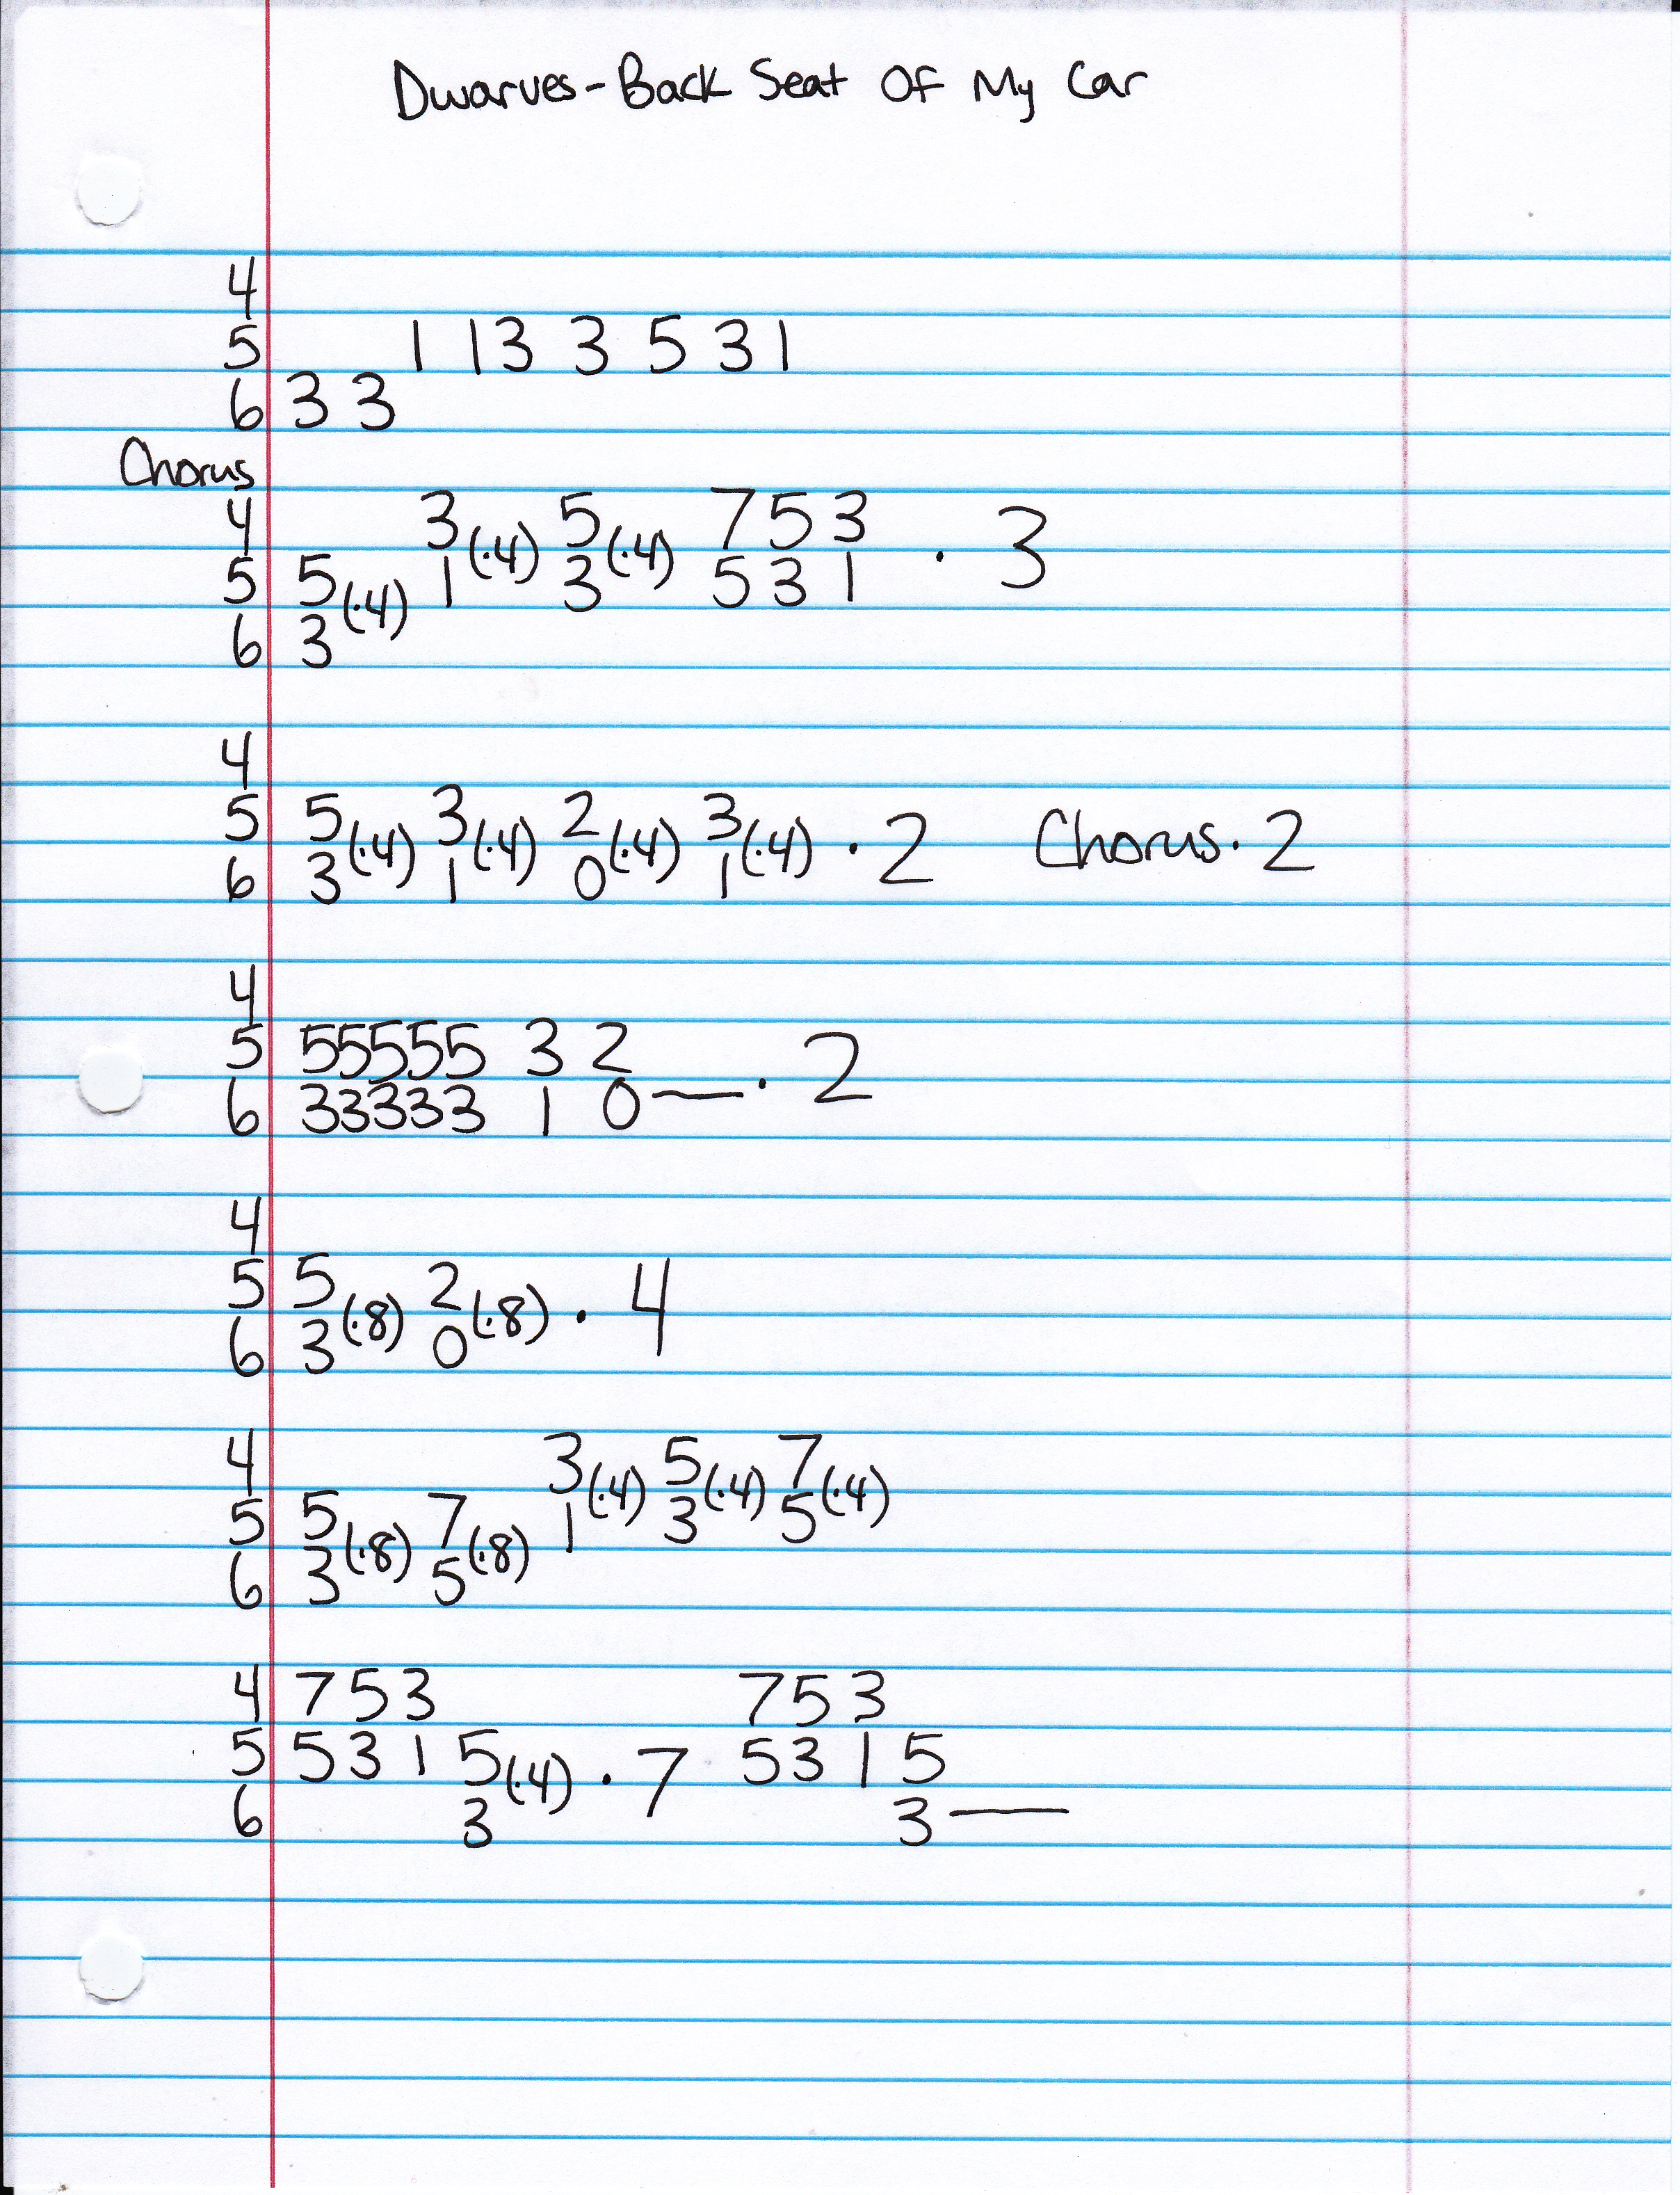 Dwarves-Back Seat Of My Car
4
5 1 13 3 5 3 1
6 3 3
Chorus
4 3(·4) 5(·4) 7 5 3 · 3
5 5(·4) 1 3 5 3 1
6 3
4
5 5(·4) 3(·4) 2(·4) 3(·4) · 2 Chorus · 2
6 3 1 0 1
4
5 55555 3 2
6 33333 1 0— · 2
4
5 5(·8) 2(·8) · 4
6 3 0
4 3(·4) 5(·4) 7(·4)
5 5(·8) 7(·8) 1 3 5
6 3 5
4 7 5 3 7 5 3
5 5 3 1 5(·4) · 7 5 3 1 5
6 3 3—